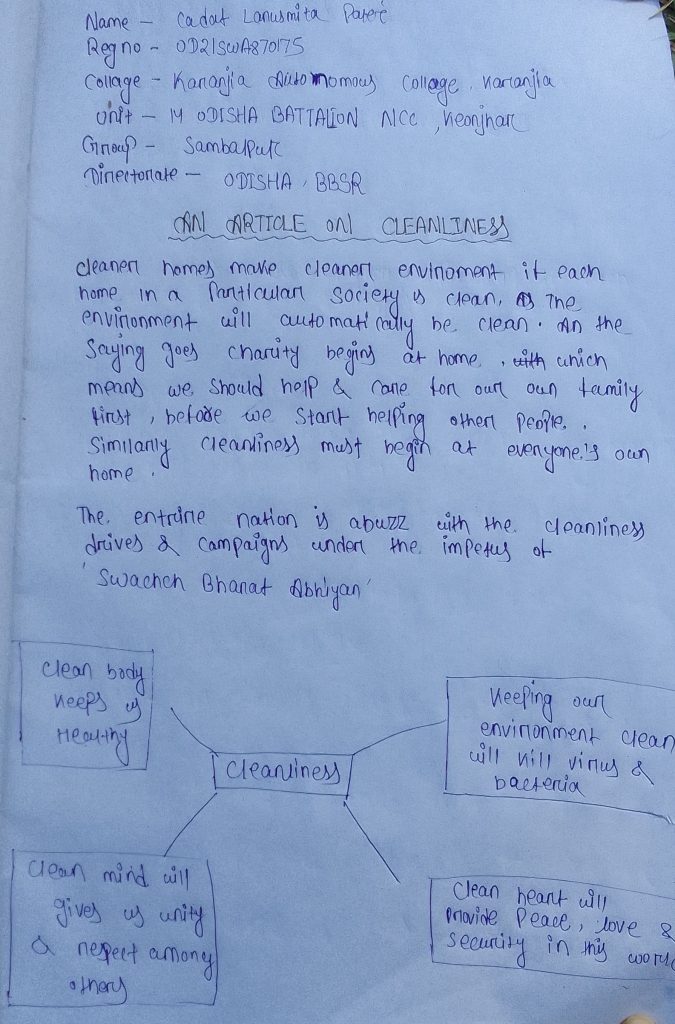 Name - Cadat Lanusmita Patere
Reg no - OD21SWA870175
Collage - Karanjia Automomous Collage, Karanjia
Unit - 14 ODISHA BATTALION NCC, Keonjhar
Group - Sambalpur
Directorate - ODISHA, BBSR
AN ARTICLE ON CLEANLINESS
cleaner homes make cleaner enviroment if each
home in a Particular society is clean, The
environment will automatically be clean. An the
Saying goes charity begins at home, which
means we should help & care for our own family
first, before we start helping other People.
Similarly cleanliness must begin at everyone's own
home.
The entrire nation is abuzz with the cleanliness
drives & campaigns under the impetus of
'Swachch Bharat Abhiyan'
Clean body
keeps us
Healthy
Keeping our
environment clean
will kill virus &
bacteria
Cleanliness
Clean mind will
gives us unity
& respect among
others
Clean heart will
Provide Peace, love &
security in this world